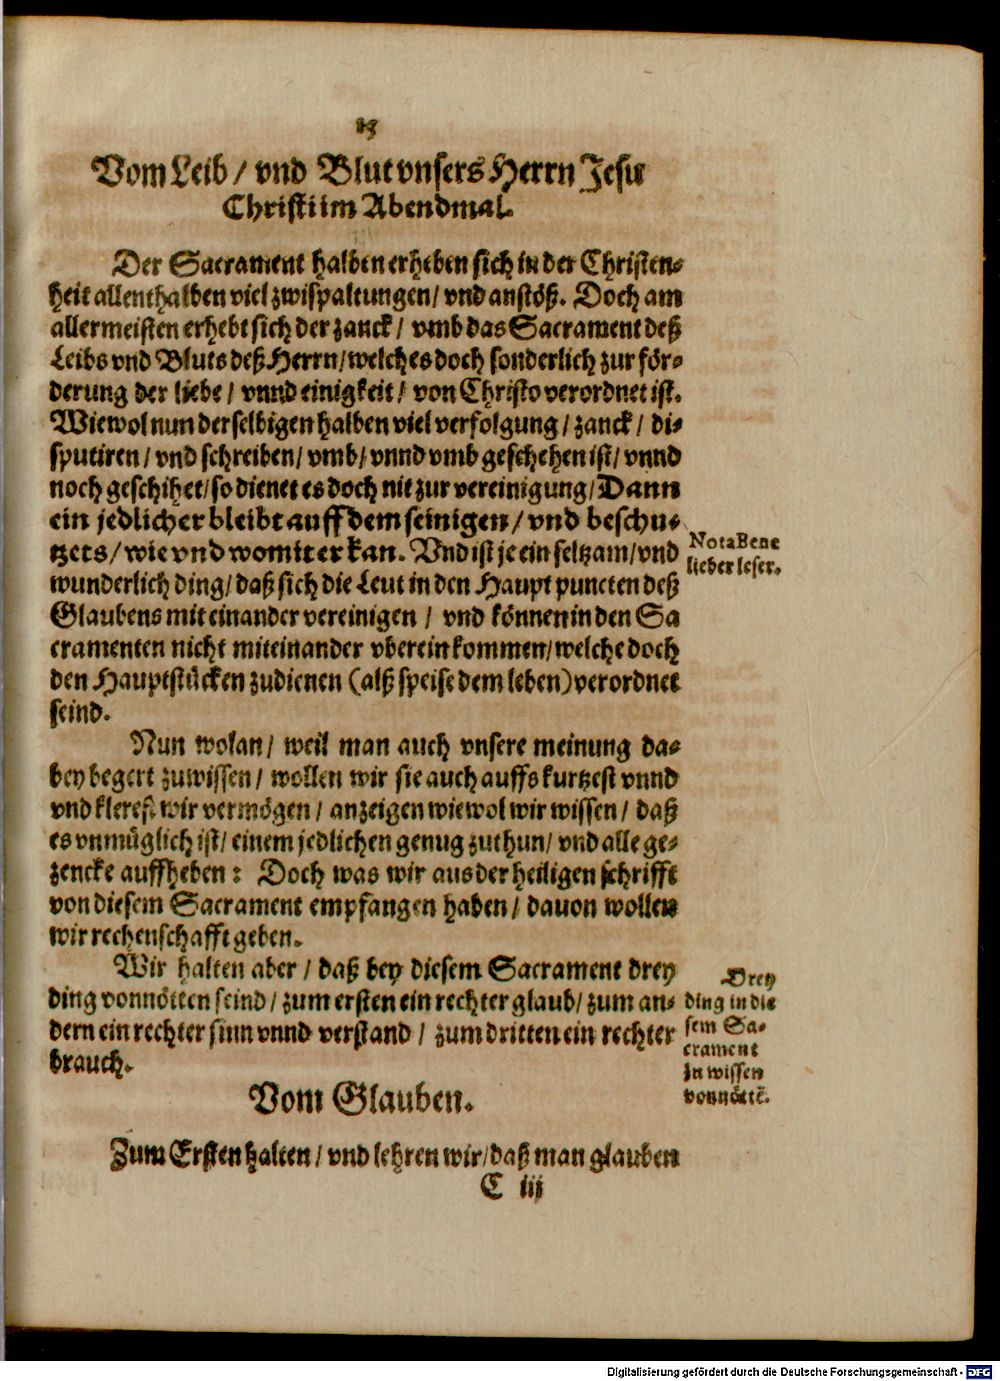 Vom Leib / vnd Blut vnsers Herrn Jesu
Christi im Abendmal.
Der Sacrament halben erheben sich in der Christen-
heit allenthalben viel zwispaltungen / vnd anstöß. Doch am
allermeisten erhebt sich der zanck / vmb das Sacrament deß
Leibs vnd Bluts deß Herrn / welches doch sonderlich zur för-
derung der liebe / vnnd einigkeit / von Christo verordnet ist.
Wiewol nun derselbigen halben viel verfolgung / zanck / di-
sputiren / vnd schreiben / vmb / vnnd vmb geschehen ist / vnnd
noch geschihet / so dienet es doch nit zur vereinigung / Dann
ein jedlicher bleibt auff dem seinigen / vnd beschu-
tzets / wie vnd womit er kan. Vnd ist je ein seltzam / vnd
wunderlich ding / daß sich die Leut in den Haupt puncten deß
Glaubens mit einander vereinigen / vnd können in den Sa
cramenten nicht miteinander vberein kommen / welche doch
den Hauptstücken zudienen (alß speise dem leben) verordnet
seind.
NotaBene
lieber leser.
Nun wolan / weil man auch vnsere meinung da-
bey begert zuwissen / wollen wir sie auch auffs kurtzest vnnd
vnd klerest wir vermögen / anzeigen wiewol wir wissen / daß
es vnmüglich ist / einem jedlichen genug zuthun / vnd alle ge-
zencke auffheben : Doch was wir aus der heiligen schrifft
von diesem Sacrament empfangen haben / dauon wollen
wir rechenschafft geben.
Wir halten aber / daß bey diesem Sacrament drey
ding vonnötten seind / zum ersten ein rechter glaub / zum an-
dern ein rechter sinn vnnd verstand / zum dritten ein rechter
brauch.
Drey
ding in die
sem Sa-
crament
zu wissen
vonnöttē.
Vom Glauben.
Zum Ersten halten / vnd lehren wir / daß man glauben
C iii
Digitalisierung gefördert durch die Deutsche Forschungsgemeinschaft - DFG